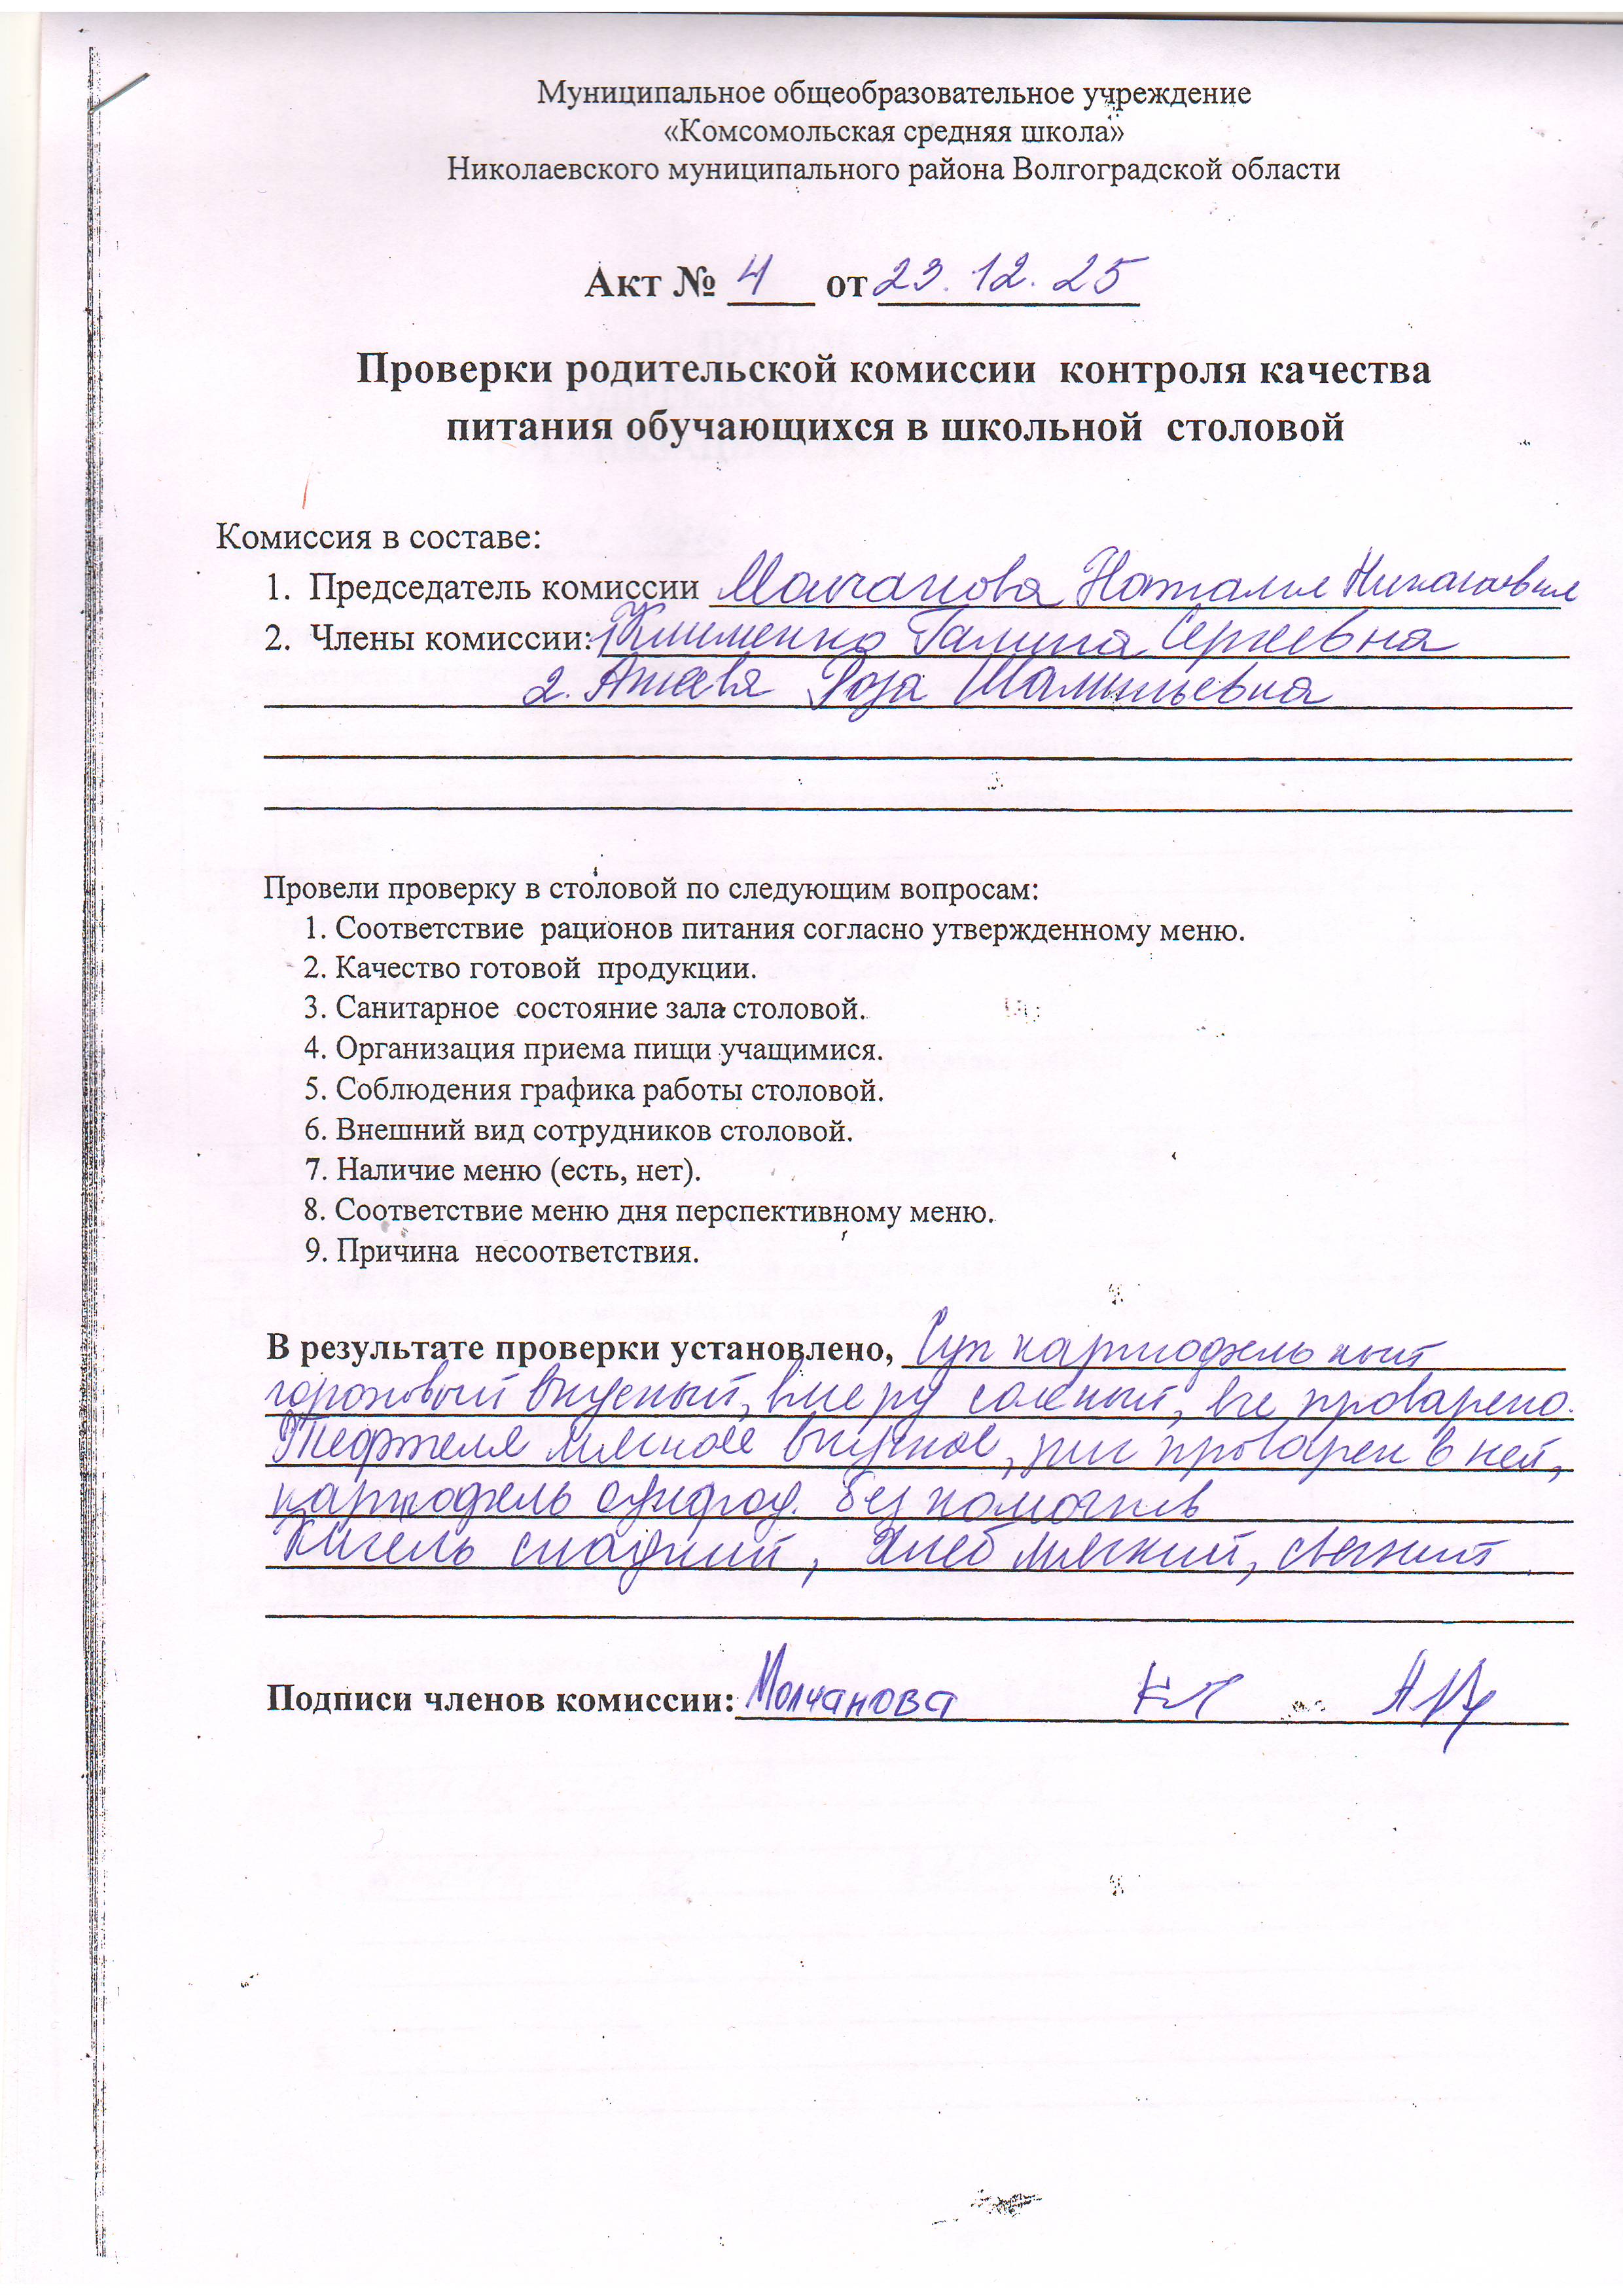 Муниципальное общеобразовательное учреждение
«Комсомольская средняя школа»
Николаевского муниципального района Волгоградской области
Акт № 4 от 23.12.25
Проверки родительской комиссии контроля качества
питания обучающихся в школьной столовой
Комиссия в составе:
1. Председатель комиссии Молчанова Наталья Николаевна
2. Члены комиссии: 1. Клименко Галина Сергеевна
2. Ажаева Роза Шамильевна
Провели проверку в столовой по следующим вопросам:
1. Соответствие рационов питания согласно утвержденному меню.
2. Качество готовой продукции.
3. Санитарное состояние зала столовой.
4. Организация приема пищи учащимися.
5. Соблюдения графика работы столовой.
6. Внешний вид сотрудников столовой.
7. Наличие меню (есть, нет).
8. Соответствие меню дня перспективному меню.
9. Причина несоответствия.
В результате проверки установлено, Суп картофельный
гороховый вкусный, вмеру соленый, все проварено.
Тефтеля мясная вкусная, рис проварен в ней,
картофель без комочков
Кисель сладкий, Хлеб мягкий, свежий
Подписи членов комиссии: Молчанова